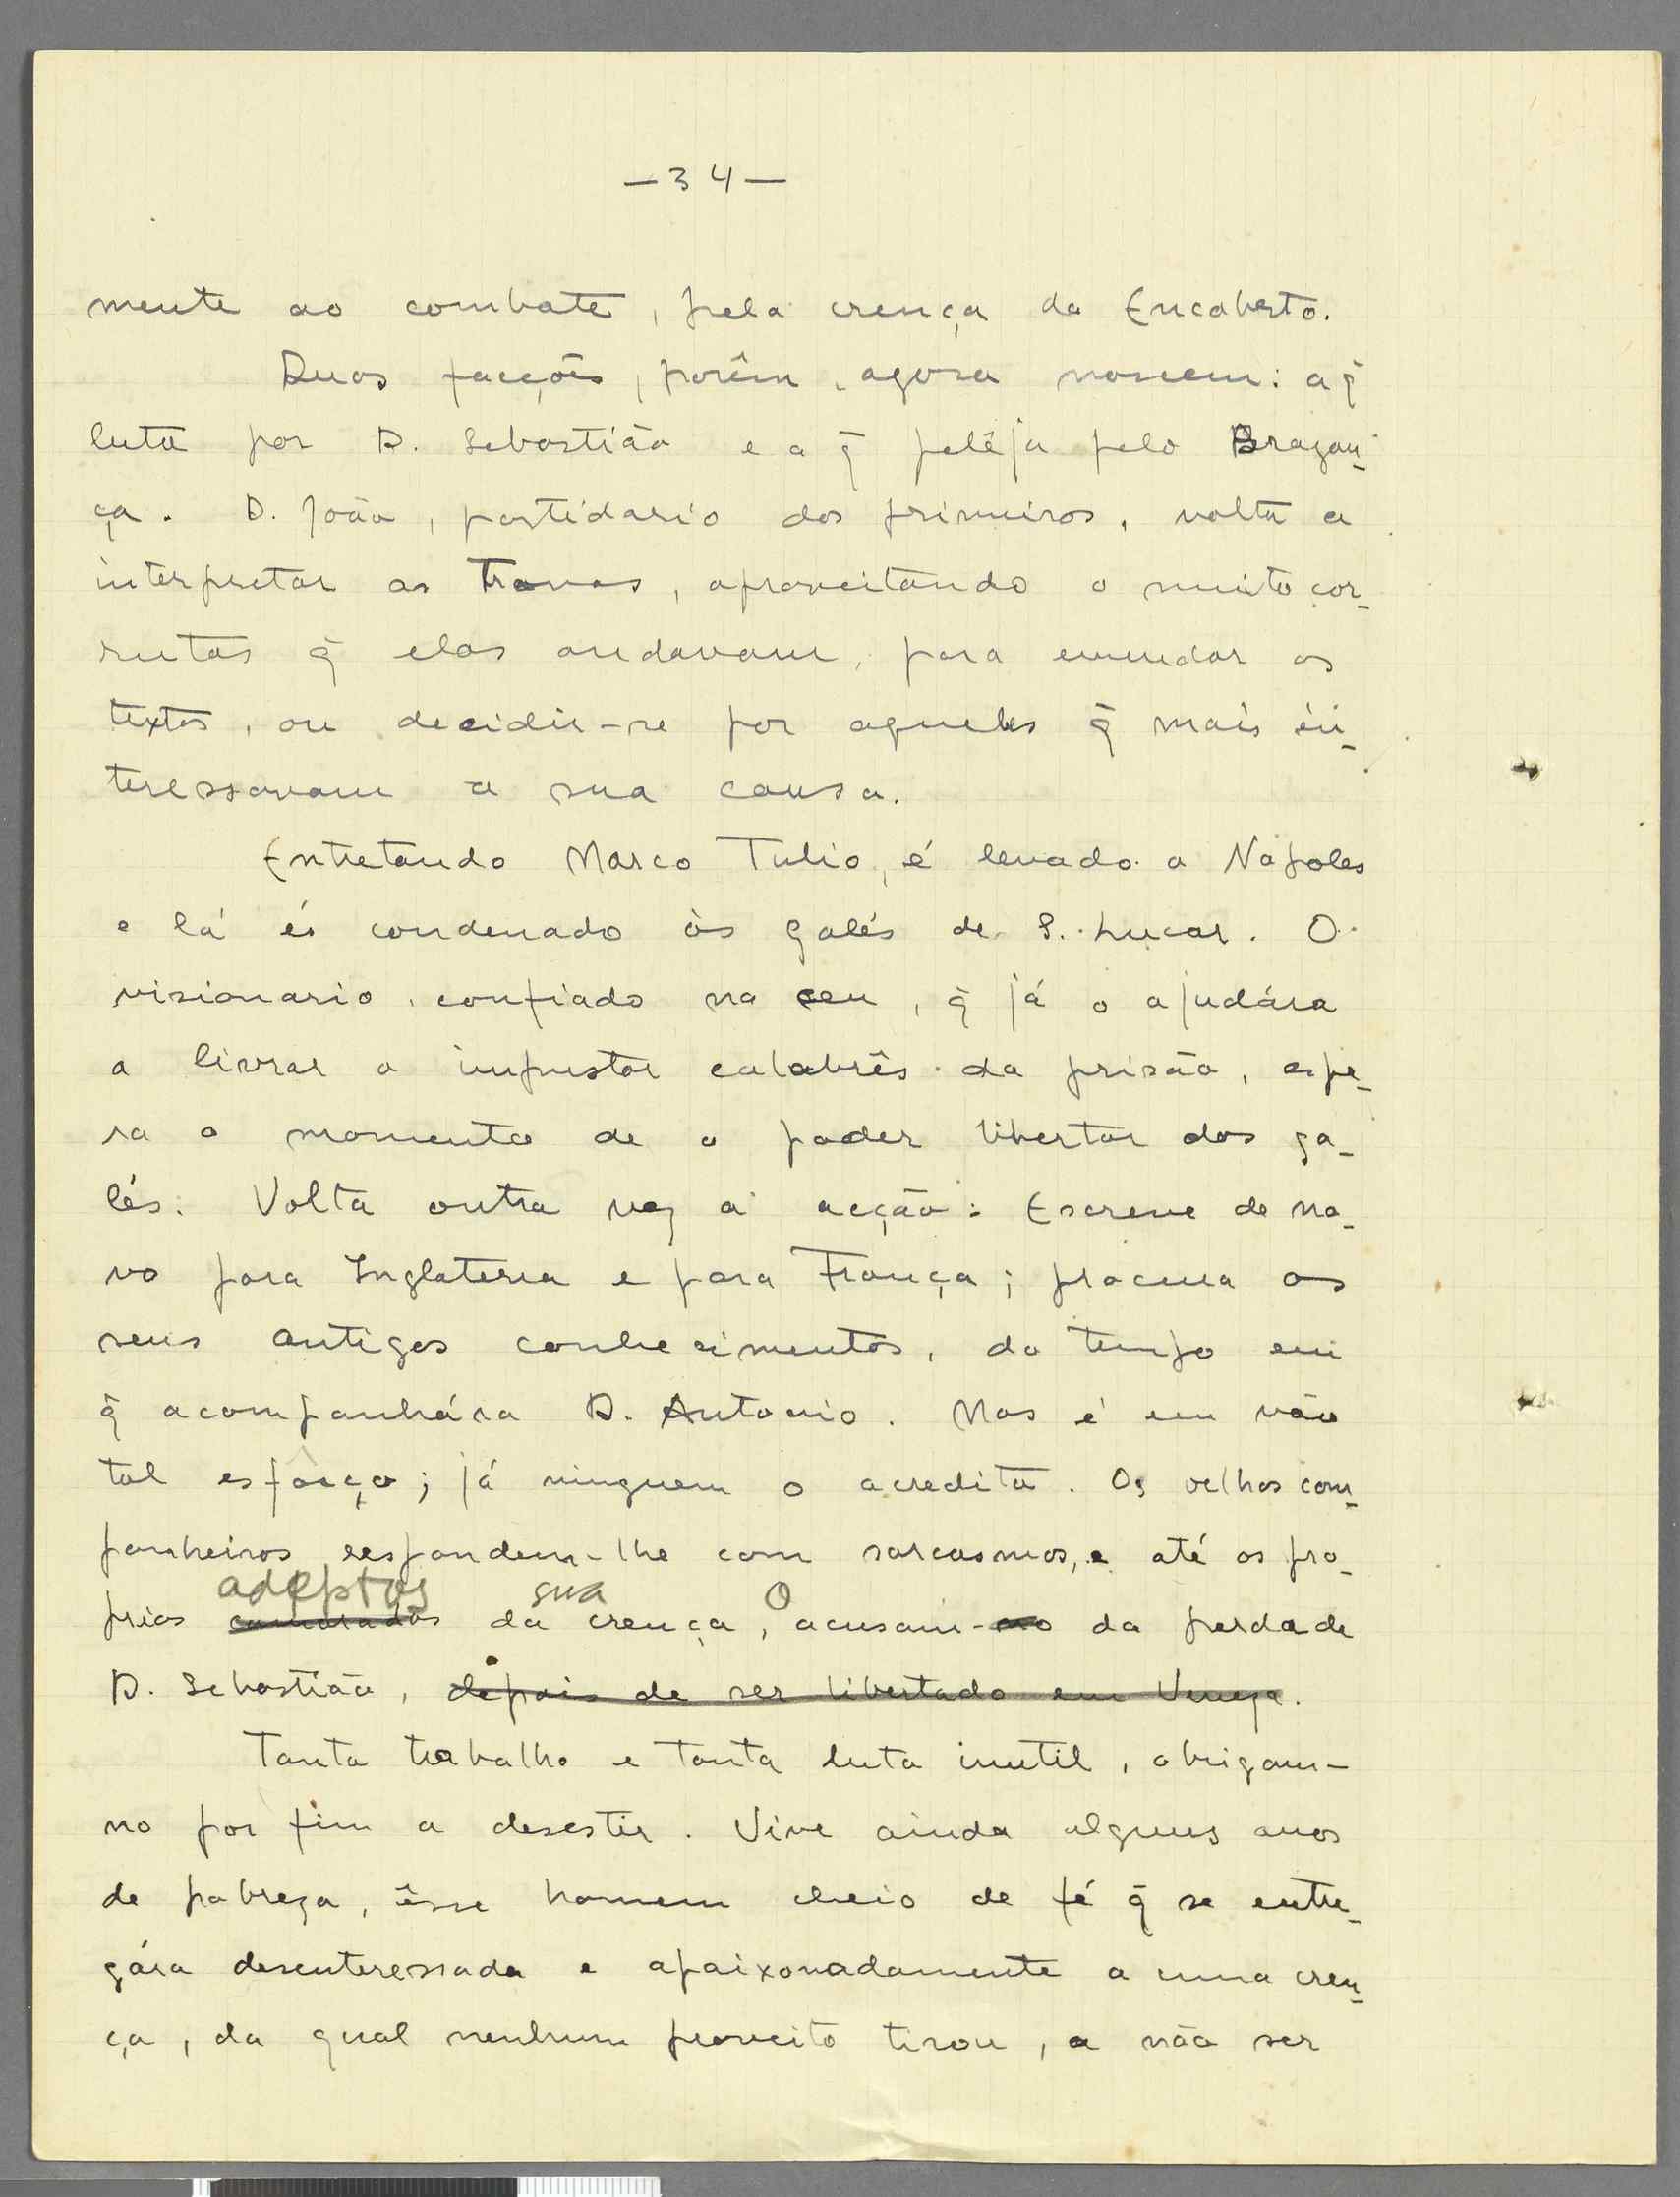 —34—
mente ao combate, pela crença do Encoberto.
Duas facções, porêm, agora nascem: a q̃
luta por D. Sebastião e a q̃ pelêja pelo Bragan-
ça. D. João, partidario dos primeiros, volta a
interpretar as Trovas, aproveitando o muito cor-
rutas q̃ elas andavam, para emendar os
textos, ou decidir-se por aqueles q̃ mais in-
teressavam a sua causa.
Entretando Marco Tulio, é levado a Napoles
e lá é condenado ás galés de S. Lucar. O
visionario, confiado no ceu, q̃ já o ajudára
a livrar o impustor calabrês da prisão, espe-
ra o momento de o poder libertar das ga-
lés. Volta outra vez á acção: Escreve de no-
vo para Inglaterra e para França; procura os
seus antigos conhecimentos, do tempo em
q̃ acompanhára D. Antonio. Mas é em vão
tal esfôrço; já ninguem o acredita. Os velhos com-
panheiros respondem-lhe com sarcasmos, e até os pro-
adeptos sua o
prios camaradas da crença, acusam-no da perda de
D. Sebastião, depois de ser libertado em Veneza.
Tanto trabalho e tanta luta inutil, obrigam-
no por fim a desestir. Vive ainda alguns anos
de pobreza, êsse homem cheio de fé q̃ se entre-
gára desenteressada e apaixonadamente a uma cren-
ça, da qual nenhum proveito tirou, a não ser